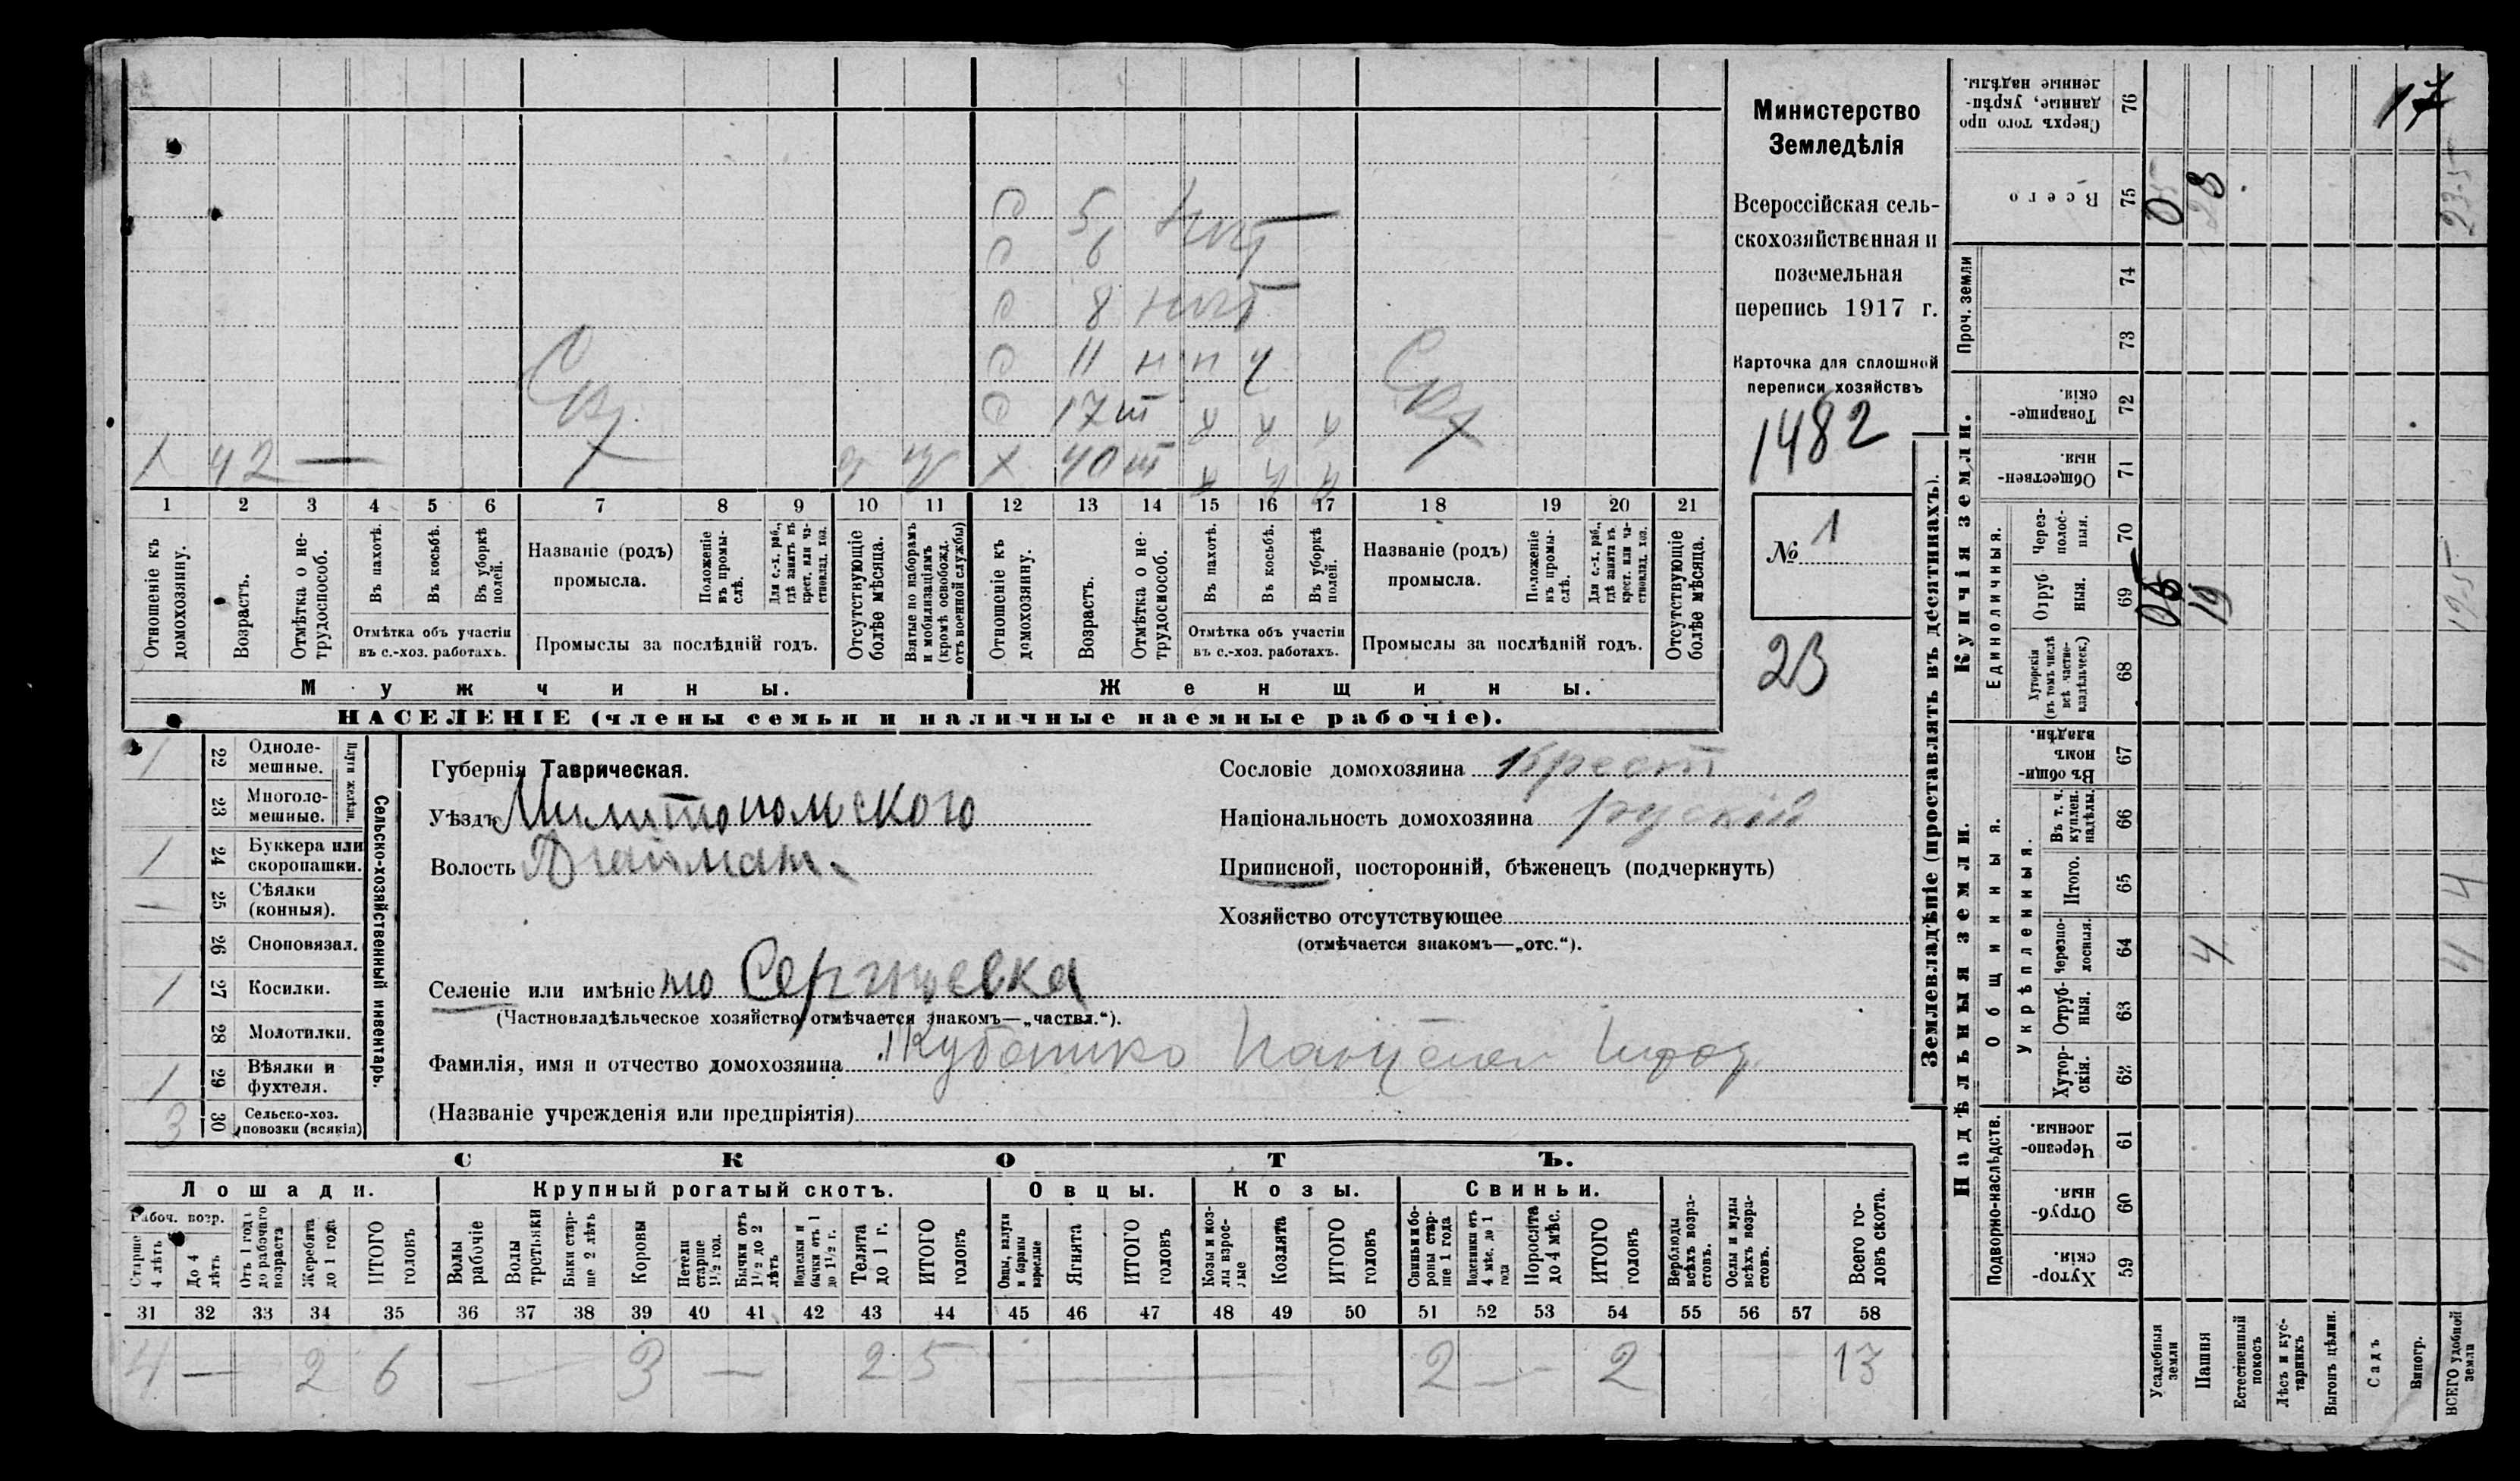 Министерство
Земледѣлія
Всероссійская сель-
скохозяйственная и
поземельная
перепись 1917 г.
Карточка для сплошной
переписи хозяйствъ
1482
№ 1
23
5
6
8 нпт
11 н п ч
17
1 42 — 40
1 2 3 4 5 6 7 8 9 10 11 12 13 14 15 16 17 18 19 20 21
Отношеніе къ домохозяину.
Возрастъ.
Отмѣтка о не-трудоспособ.
Въ пахотѣ.
Въ косьбѣ.
Въ уборкѣ полей.
Отмѣтка объ участіи
въ с.-хоз. работахъ.
Названіе (родъ)
промысла.
Положеніе въ промы-слѣ.
Для с.-х. раб., гдѣ занятъ въ крест. или ча-стновлад. хоз.
Промыслы за послѣдній годъ.
Отсутствующіе болѣе мѣсяца.
Взятые по наборамъ и мобилизаціямъ (кромѣ освобожд. отъ военной службы)
Отношеніе къ домохозяину.
Возрастъ.
Отмѣтка о не-трудоспособ.
Въ пахотѣ.
Въ косьбѣ.
Въ уборкѣ полей.
Отмѣтка объ участіи
въ с.-хоз. работахъ.
Названіе (родъ)
промысла.
Положеніе въ промы-слѣ.
Для с.-х. раб., гдѣ занята въ крест. или ча-стновлад. хоз.
Промыслы за послѣдній годъ.
Отсутствующіе болѣе мѣсяца.
Мужчины. Женщины.
НАСЕЛЕНІЕ (члены семьи и наличные наемные рабочіе).
1 22 Одноле-мешные.
23 Многоле-мешные.
Плуги желѣзн.
1 24 Буккера или скоропашки.
— 25 Сѣялки (конныя).
26 Сноповязал.
1 27 Косилки.
28 Молотилки.
1 29 Вѣялки и фухтеля.
3 30 Сельско-хоз. повозки (всякія)
Сельско-хозяйственный инвентарь.
Губернія Таврическая.
Уѣздъ
Волость
Селеніе или имѣніе
(Частновладѣльческое хозяйство отмѣчается знакомъ—„частвл.“).
Фамилія, имя и отчество домохозяина
(Названіе учрежденія или предпріятія)
Сословіе домохозяина Крест
Національность домохозяина рускій
Приписной, посторонній, бѣженецъ (подчеркнуть)
Хозяйство отсутствующее
(отмѣчается знакомъ—„отс.“).
СКОТЪ.
Лошади. Крупный рогатый скотъ. Овцы. Козы. Свиньи.
Рабоч. возр.
Старше 4 лѣтъ
До 4 лѣтъ
Отъ 1 года до рабочаго возраста
Жеребята до 1 года
ИТОГО головъ
Волы рабочіе
Волы третьяки
Быки стар-ше 2 лѣтъ
Коровы
Нетели старше 1½ год.
Бычки отъ 1½ до 2 лѣтъ
Нетелки и бычки отъ 1 до 1½ г.
Телята до 1 г.
ИТОГО головъ
Овцы, валухи и бараны взрослые
Ягнята
ИТОГО головъ
Козы и коз-лы взрос-лые
Козлята
ИТОГО головъ
Свиньи и бо-ровы стар-ше 1 года
Подсвинки отъ 4 мѣс. до 1 года
Поросята до 4 мѣс.
ИТОГО головъ
Верблюды всѣхъ возра-стовъ.
Ослы и мулы всѣхъ возра-стовъ.
Всего го-ловъ скота.
31 32 33 34 35 36 37 38 39 40 41 42 43 44 45 46 47 48 49 50 51 52 53 54 55 56 57 58
4 — 2 6 — 3 — 2 5 — 2 — 2 13
Землевладѣніе (проставлять въ десятинахъ).
Купчія земли.
Надѣльныя земли.
Сверхъ того про-данные, укрѣп-ленные надѣлы. 76 17
Всего 75
Проч. земли 74 73
Товарище-скія. 72
Обществен-ныя. 71
Единоличныя.
Через-полос-ныя. 70
Отруб-ныя. 69 19
Хуторскія (въ томъ числѣ всѣ частно-владѣльческ.) 68
Общинныя.
Въ общи-номъ владѣн. 67
Укрѣпленныя.
Въ т. ч. куплен. надѣлы. 66
Итого. 65 4
Черезпо-лосныя. 64 4 4
Отруб-ныя. 63
Хутор-скія. 62
Подворно-наслѣдств.
Черезпо-лосныя. 61
Отруб-ныя. 60
Хутор-скія. 59
Усадебныя земли
Пашня
Естественный покосъ
Лѣсъ и кус-тарникъ
Выгонъ цѣлин.
Садъ
Виногр.
ВСЕГО удобной земли